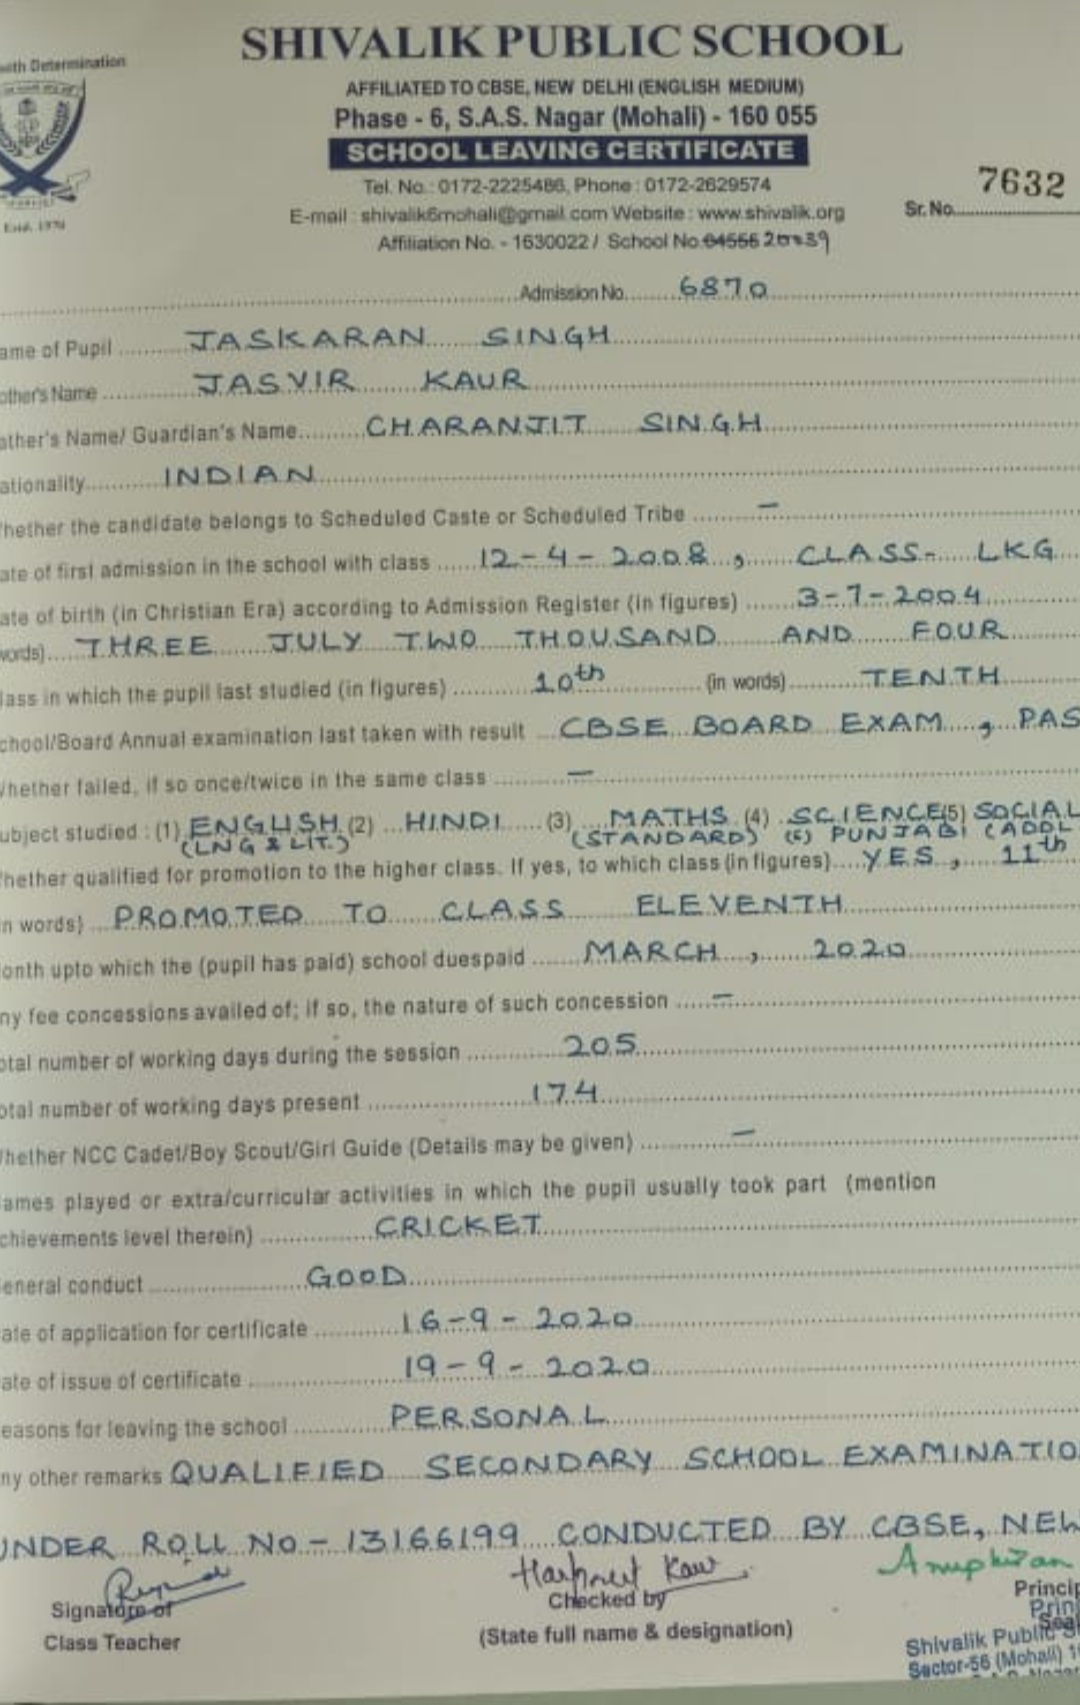 SHIVALIK PUBLIC SCHOOL
Determination
AFFILIATED TO CBSE, NEW DELHI (ENGLISH MEDIUM)
Phase - 6, S.A.S. Nagar (Mohali) - 160 055
SCHOOL LEAVING CERTIFICATE
Tel. No. : 0172-2225486, Phone : 0172-2629574
7632
E-mail : shivalik6mohali@gmail.com Website : www.shivalik.org
Sr. No.
Estd. 1970
Affiliation No. - 1630022 / School No.
Admission No. 6870
ame of Pupil JASKARAN SINGH
other's Name JASVIR KAUR
ather's Name/ Guardian's Name CHARANJIT SINGH
ationality INDIAN
hether the candidate belongs to Scheduled Caste or Scheduled Tribe –
ate of first admission in the school with class 12-4-2008, CLASS- LKG
ate of birth (in Christian Era) according to Admission Register (in figures) 3-7-2004
words) THREE JULY TWO THOUSAND AND FOUR
lass in which the pupil last studied (in figures) 10th (in words) TENTH
chool/Board Annual examination last taken with result CBSE BOARD EXAM, PAS
hether failed, if so once/twice in the same class –
ubject studied : (1) ENGLISH (2) HINDI (3) MATHS (4) SCIENCE (5) SOCIAL
(LNG & LIT.) (STANDARD) (6) PUNJABI (ADDL
hether qualified for promotion to the higher class. If yes, to which class (in figures) YES, 11th
n words) PROMOTED TO CLASS ELEVENTH
onth upto which the (pupil has paid) school duespaid MARCH, 2020
ny fee concessions availed of; if so, the nature of such concession –
otal number of working days during the session 205
otal number of working days present 174
hether NCC Cadet/Boy Scout/Girl Guide (Details may be given) –
ames played or extra/curricular activities in which the pupil usually took part (mention
chievements level therein) CRICKET
eneral conduct GOOD
ate of application for certificate 16-9-2020
ate of issue of certificate 19-9-2020
easons for leaving the school PERSONAL
ny other remarks QUALIFIED SECONDARY SCHOOL EXAMINATIO
UNDER ROLL NO - 13166199 CONDUCTED BY CBSE, NEW
Harpreet Kaur
Signature of
Checked by
Princip
Class Teacher
(State full name & designation)
Seal
Prin
Shivalik Public S
Sector-56 (Mohali)